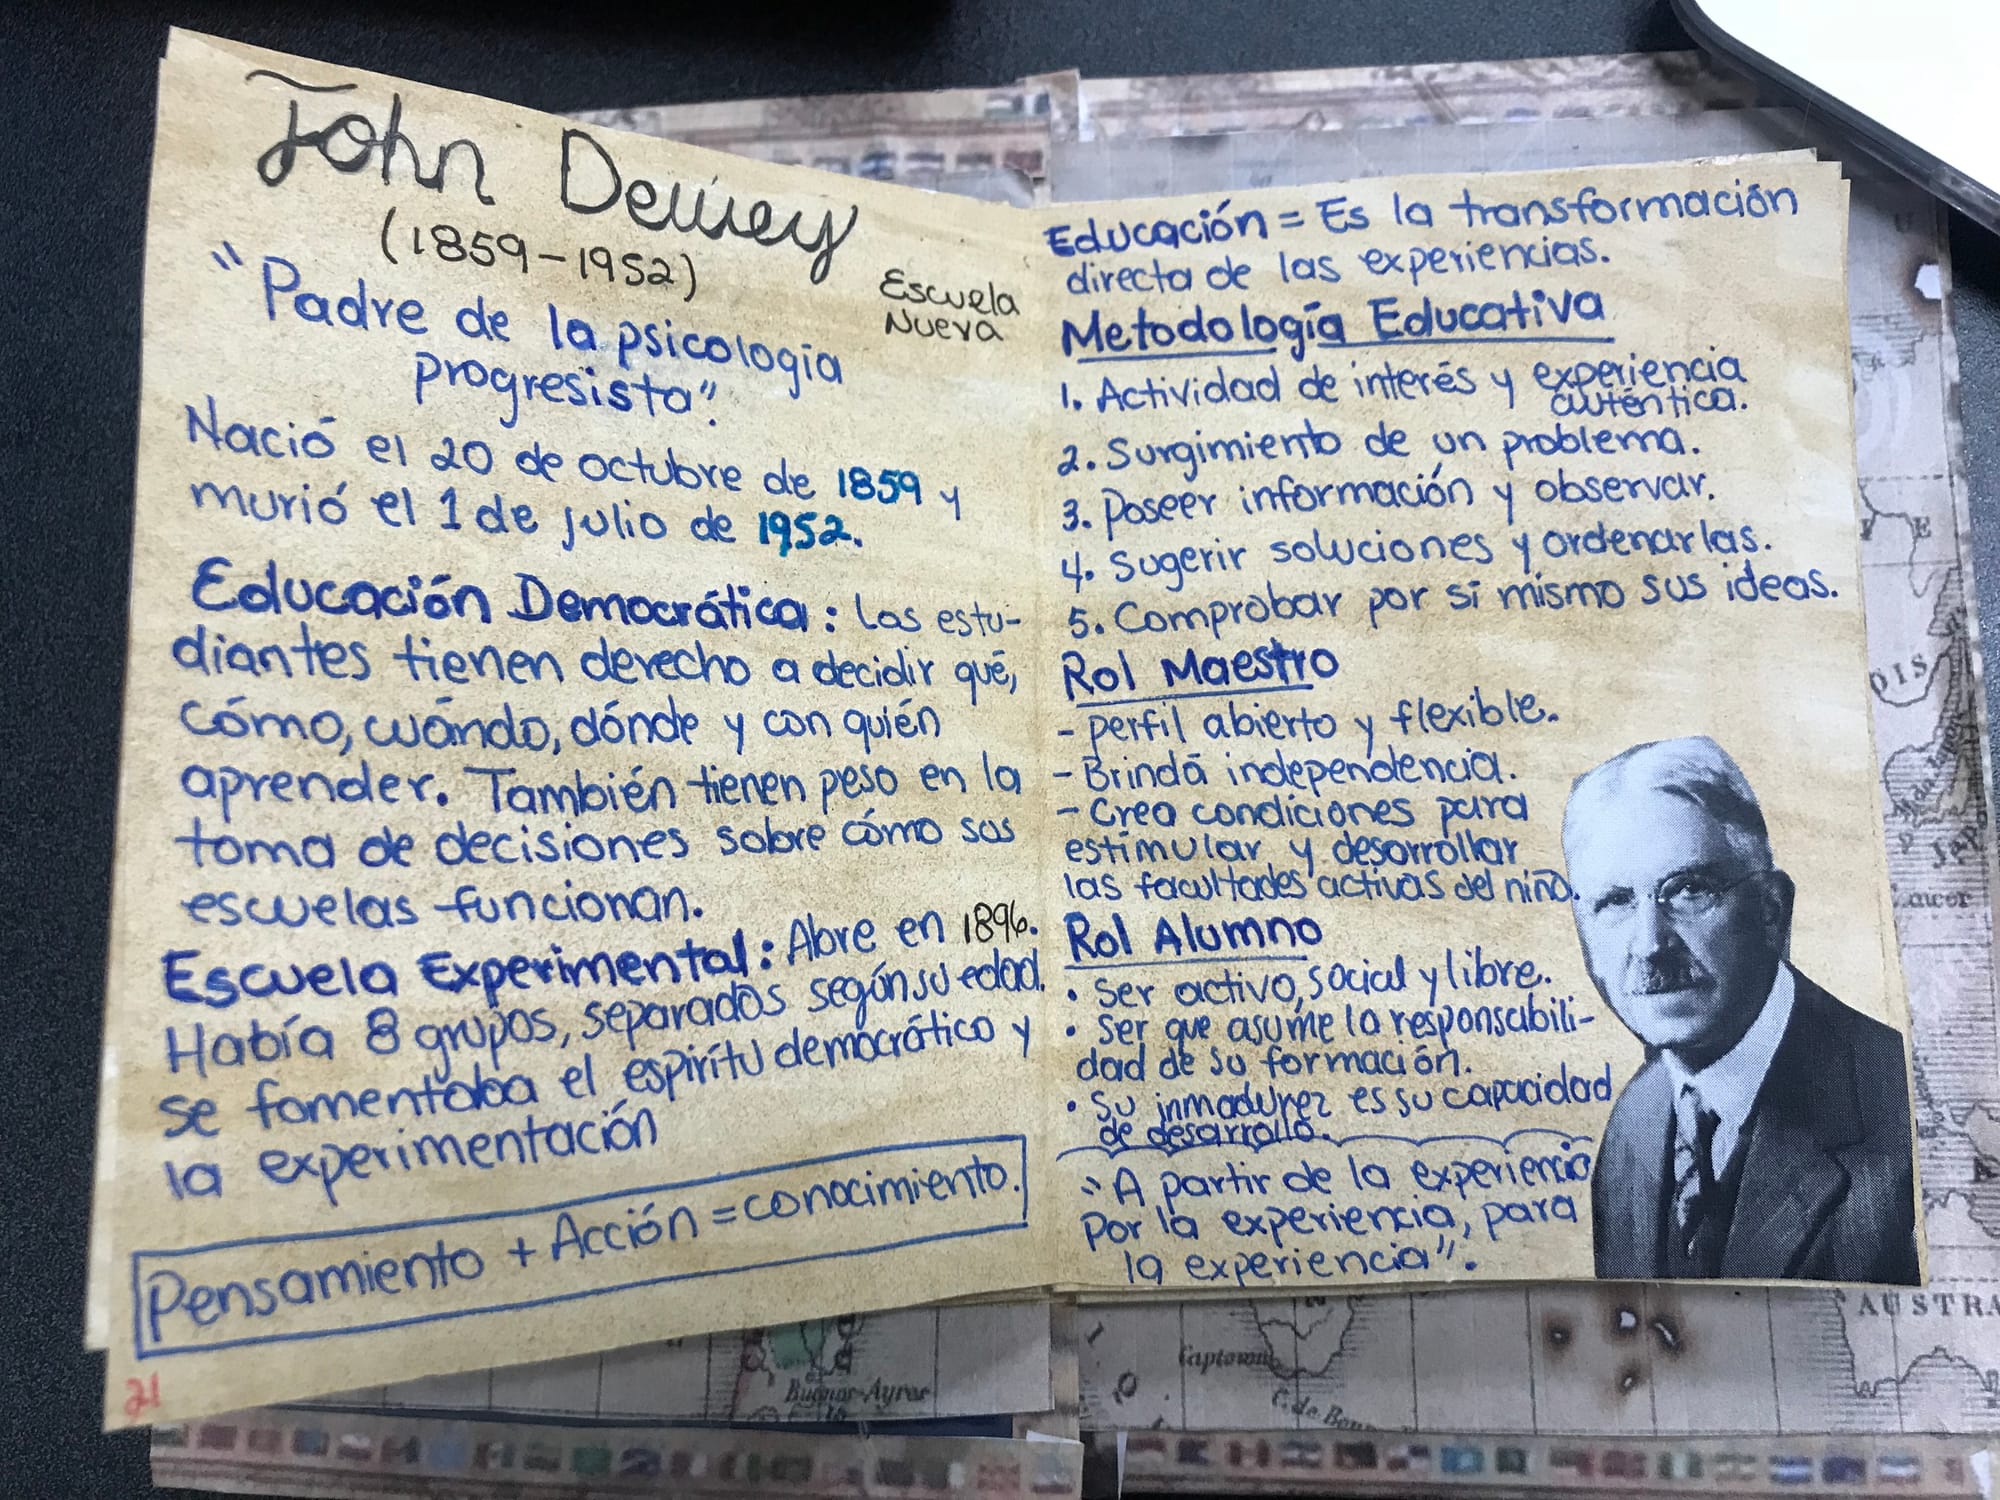 John Dewey
(1859-1952)
Escuela
Nueva
"Padre de la psicología
progresista".
Nació el 20 de octubre de 1859 y
murió el 1 de julio de 1952.
Educación Democrática: Los estu-
diantes tienen derecho a decidir qué,
cómo, cuándo, dónde y con quién
aprender. También tienen peso en la
toma de decisiones sobre cómo sus
escuelas funcionan.
Escuela Experimental: Abre en 1896.
Había 8 grupos, separados según su edad.
se fomentaba el espíritu democrático y
la experimentación
Pensamiento + Acción = conocimiento.
21
Educación = Es la transformación
directa de las experiencias.
Metodología Educativa
1. Actividad de interés y experiencia
auténtica.
2. Surgimiento de un problema.
3. Poseer información y observar.
4. Sugerir soluciones y ordenarlas.
5. Comprobar por sí mismo sus ideas.
Rol Maestro
- Perfil abierto y flexible.
- Brinda independencia.
- Crea condiciones para
estimular y desarrollar
las facultades activas del niño.
Rol Alumno
• Ser activo, social y libre.
• Ser que asume la responsabili-
dad de su formación.
• Su inmadurez es su capacidad
de desarrollo.
"A partir de la experiencia
Por la experiencia, para
la experiencia".
Buenos-Ayres
Captown
AUSTRA